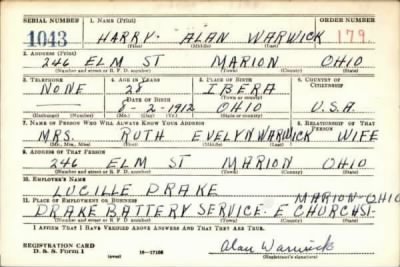 SERIAL NUMBER 1. NAME (Print) ORDER NUMBER
1043 HARRY ALAN WARWICK 179
(First) (Middle) (Last)
2. ADDRESS (Print)
246 ELM ST MARION OHIO
(Number and street or R. F. D. number) (Town) (County) (State)
3. TELEPHONE 4. AGE IN YEARS 5. PLACE OF BIRTH 6. COUNTRY OF CITIZENSHIP
NONE 28 IBERA
DATE OF BIRTH (Town or county)
8-2-1912 OHIO U.S.A.
(Exchange) (Number) (Mo.) (Day) (Yr.) (State or country)
7. NAME OF PERSON WHO WILL ALWAYS KNOW YOUR ADDRESS 8. RELATIONSHIP OF THAT PERSON
MRS. RUTH EVELYN WARWICK WIFE
(Mr., Mrs., Miss) (First) (Middle) (Last)
9. ADDRESS OF THAT PERSON
246 ELM ST MARION OHIO
(Number and street or R. F. D. number) (Town) (County) (State)
10. EMPLOYER'S NAME
LUCILLE DRAKE
11. PLACE OF EMPLOYMENT OR BUSINESS MARION-OHIO
DRAKE BATTERY SERVICE. E CHURCH ST.
(Number and street or R. F. D. number) (Town) (County) (State)
I AFFIRM THAT I HAVE VERIFIED ABOVE ANSWERS AND THAT THEY ARE TRUE.
REGISTRATION CARD
D. S. S. Form 1 (over) 16-17105 Alan Warwick
(Registrant's signature)